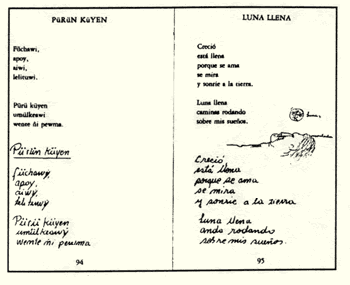 PÜRÜN KÜYEN
Füchawi,
apoy,
aiwi,
leliruwi.
Pürü küyen
umülkrawi
wente ñi pewma.
Pürün Küyen
füchawy,
apoy,
aiwy,
Pürü Küyen
umülkrawy
wente ñi pewma
94
LUNA LLENA
Creció
está llena
porque se ama
se mira
y sonrie a la tierra.
Luna llena
caminas rodando
sobre mis sueños.
Creció
está llena
porque se ama
se mira
y sonrie a la tierra
Luna llena
anda rodando
sobre mis sueños.
95